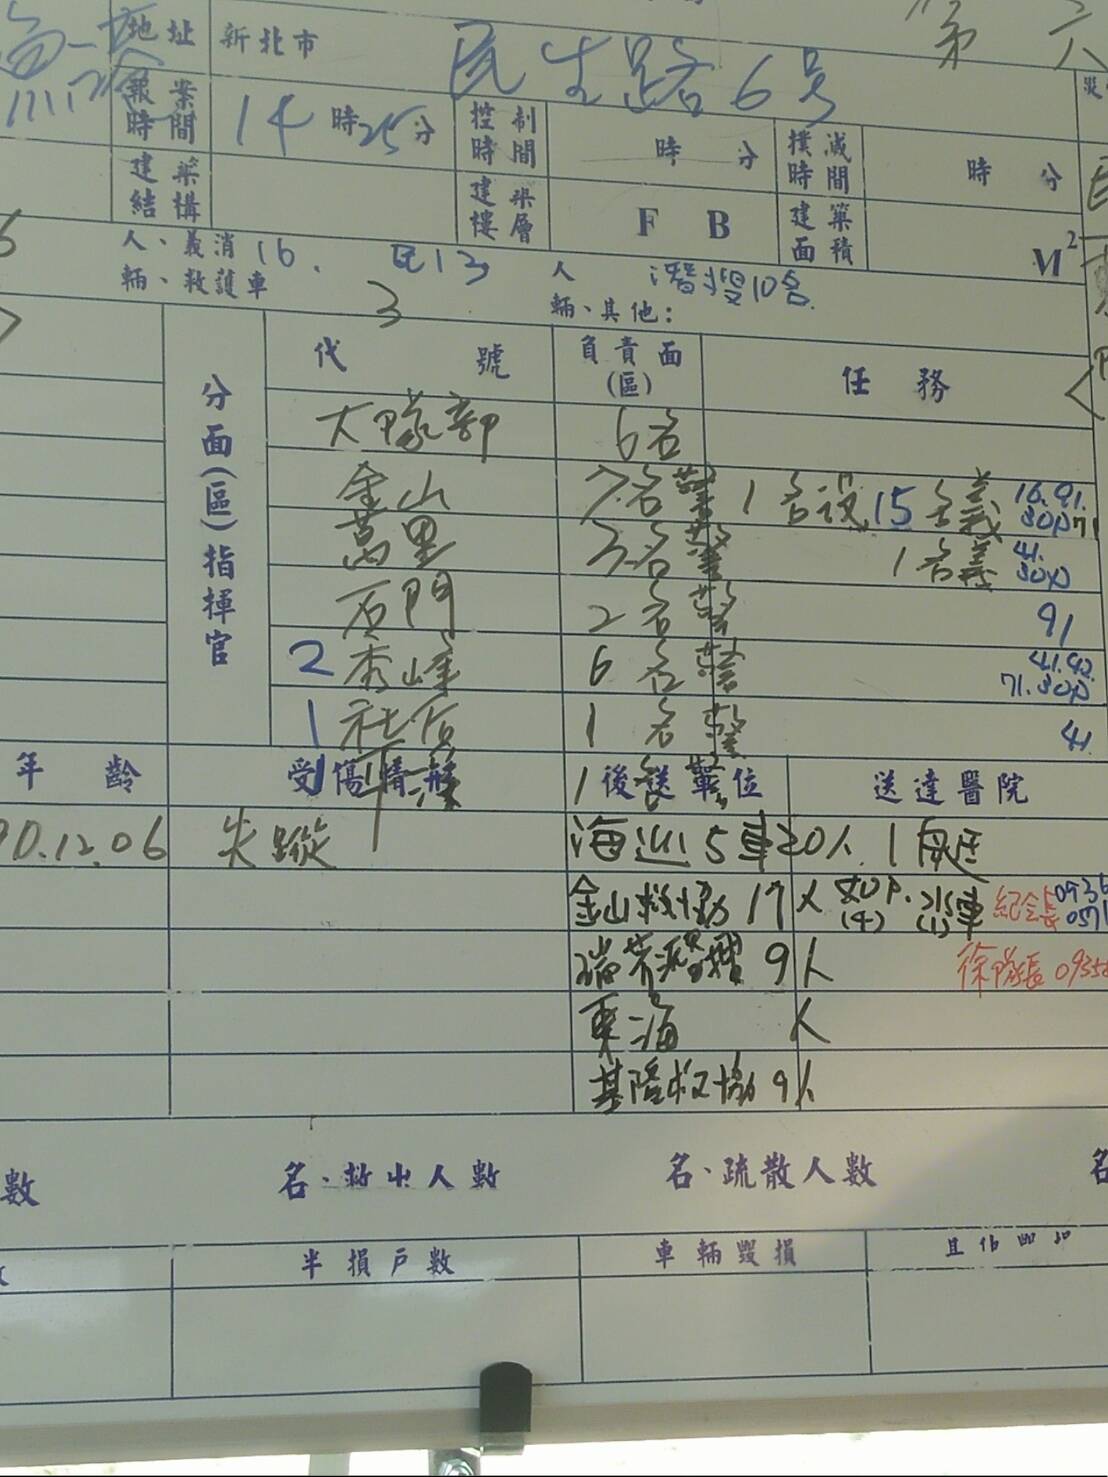 地址 新北市 民生路6号 第六
報案時間 14時25分 控制時間 時 分 撲滅時間 時 分
建築結構 建築樓層 F B 建築面積 M²
人、義消16. 民13 人 潛搜10名.
輛、救護車 3 輛、其他：
分面(區)指揮官 代號 負責面(區) 任務
大隊部 6名
金山 7名警 1名役 15名義 16.91.
萬里 3名警 1名義 41.
石門 2名警 91
2 秀峰 6名警 41.42.
1 社后 1名警 41.
年齡 受傷情形 後送單位 送達醫院
90.12.06 失蹤 海巡5車20人
金山救協17人 (4) (1)
瑞芳 9人 徐隊長
東海 人
基隆救協9人
數 名、救出人數 名、疏散人數 名
半損戶數 車輛毀損